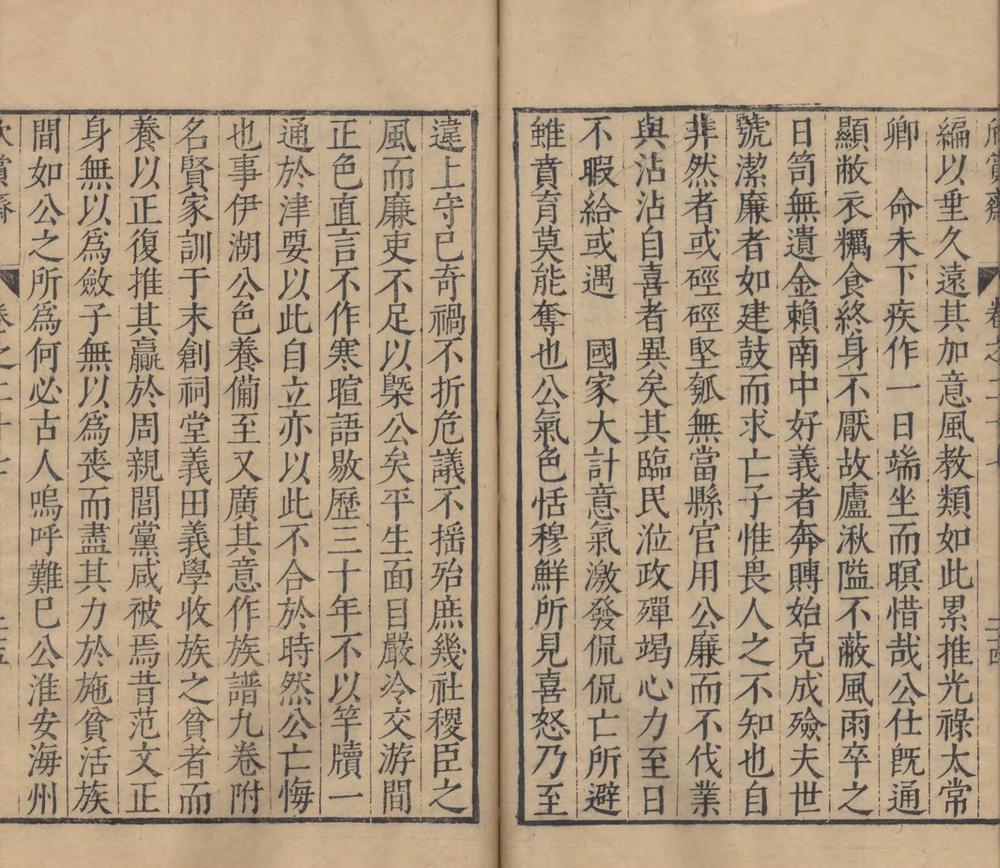 編以垂久遠其加意風教類如此累推光祿太常
卿　命未下疾作一日端坐而暝惜哉公仕旣通
顯敝衣糲食終身不厭故廬湫隘不蔽風雨卒之
日笥無遺金賴南中好義者奔賻始克成殮夫世
號潔廉者如建鼓而求亡子惟畏人之不知也自
非然者或硜硜堅瓠無當縣官用公廉而不伐業
與沾沾自喜者異矣其臨民涖政殫竭心力至日
不暇給或遇　國家大計意氣激發侃侃亡所避
雖賁育莫能奪也公氣色恬穆鮮所見喜怒乃至
違上守已奇禍不折危議不搖殆庶幾社稷臣之
風而廉吏不足以槩公矣平生面目嚴冷交游間
正色直言不作寒暄語敭歷三十年不以竿牘一
通於津要以此自立亦以此不合於時然公亡悔
也事伊湖公色養備至又廣其意作族譜九卷附
名賢家訓于末創祠堂義田義學收族之貧者而
養以正復推其贏於周親閭黨咸被焉昔范文正
身無以爲斂子無以爲喪而盡其力於施貧活族
間如公之所爲何必古人嗚呼難巳公淮安海州